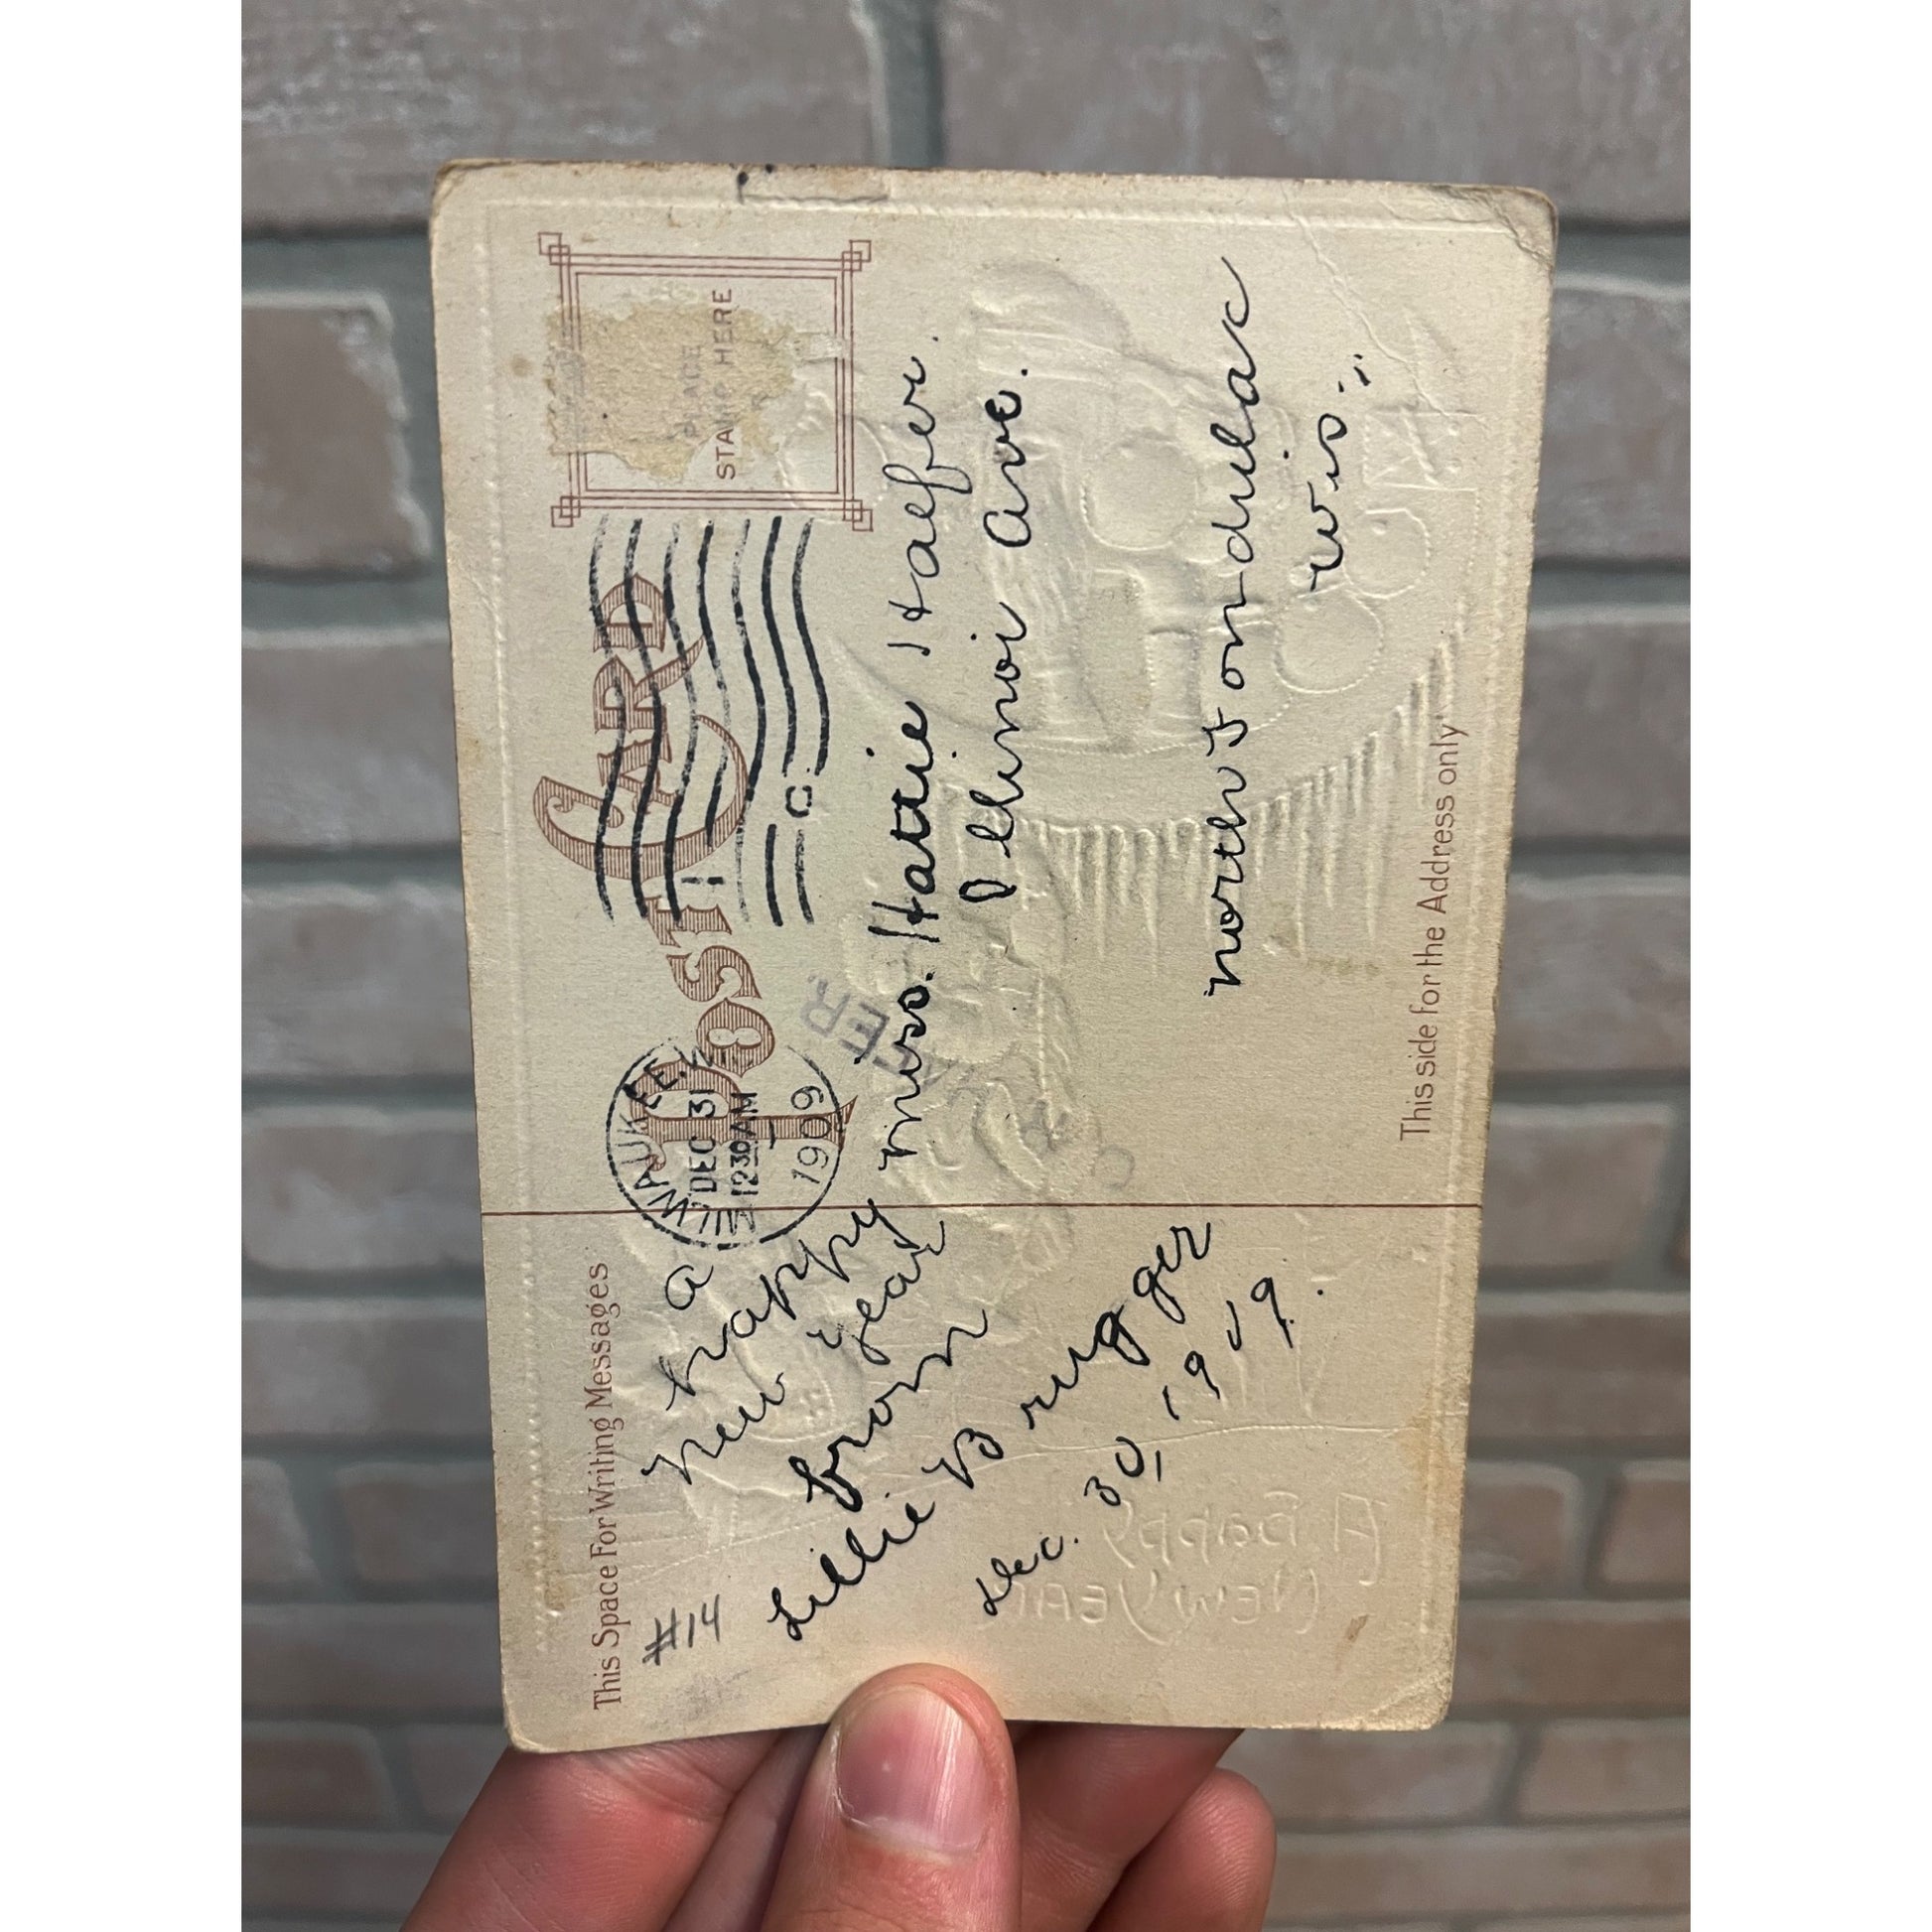 POST CARD
This Space For Writing Messages
PLACE
STAMP HERE
MILWAUKEE, W
DEC 31
1230 AM
1909
C
#14
a
happy
new year
from
Lillie Brugger
Dec. 30, 1909.
miss. Hattie Halfer.
Illinoi Ave.
north Fondulac
Wis.
This side for the Address only
A Happy
New Year